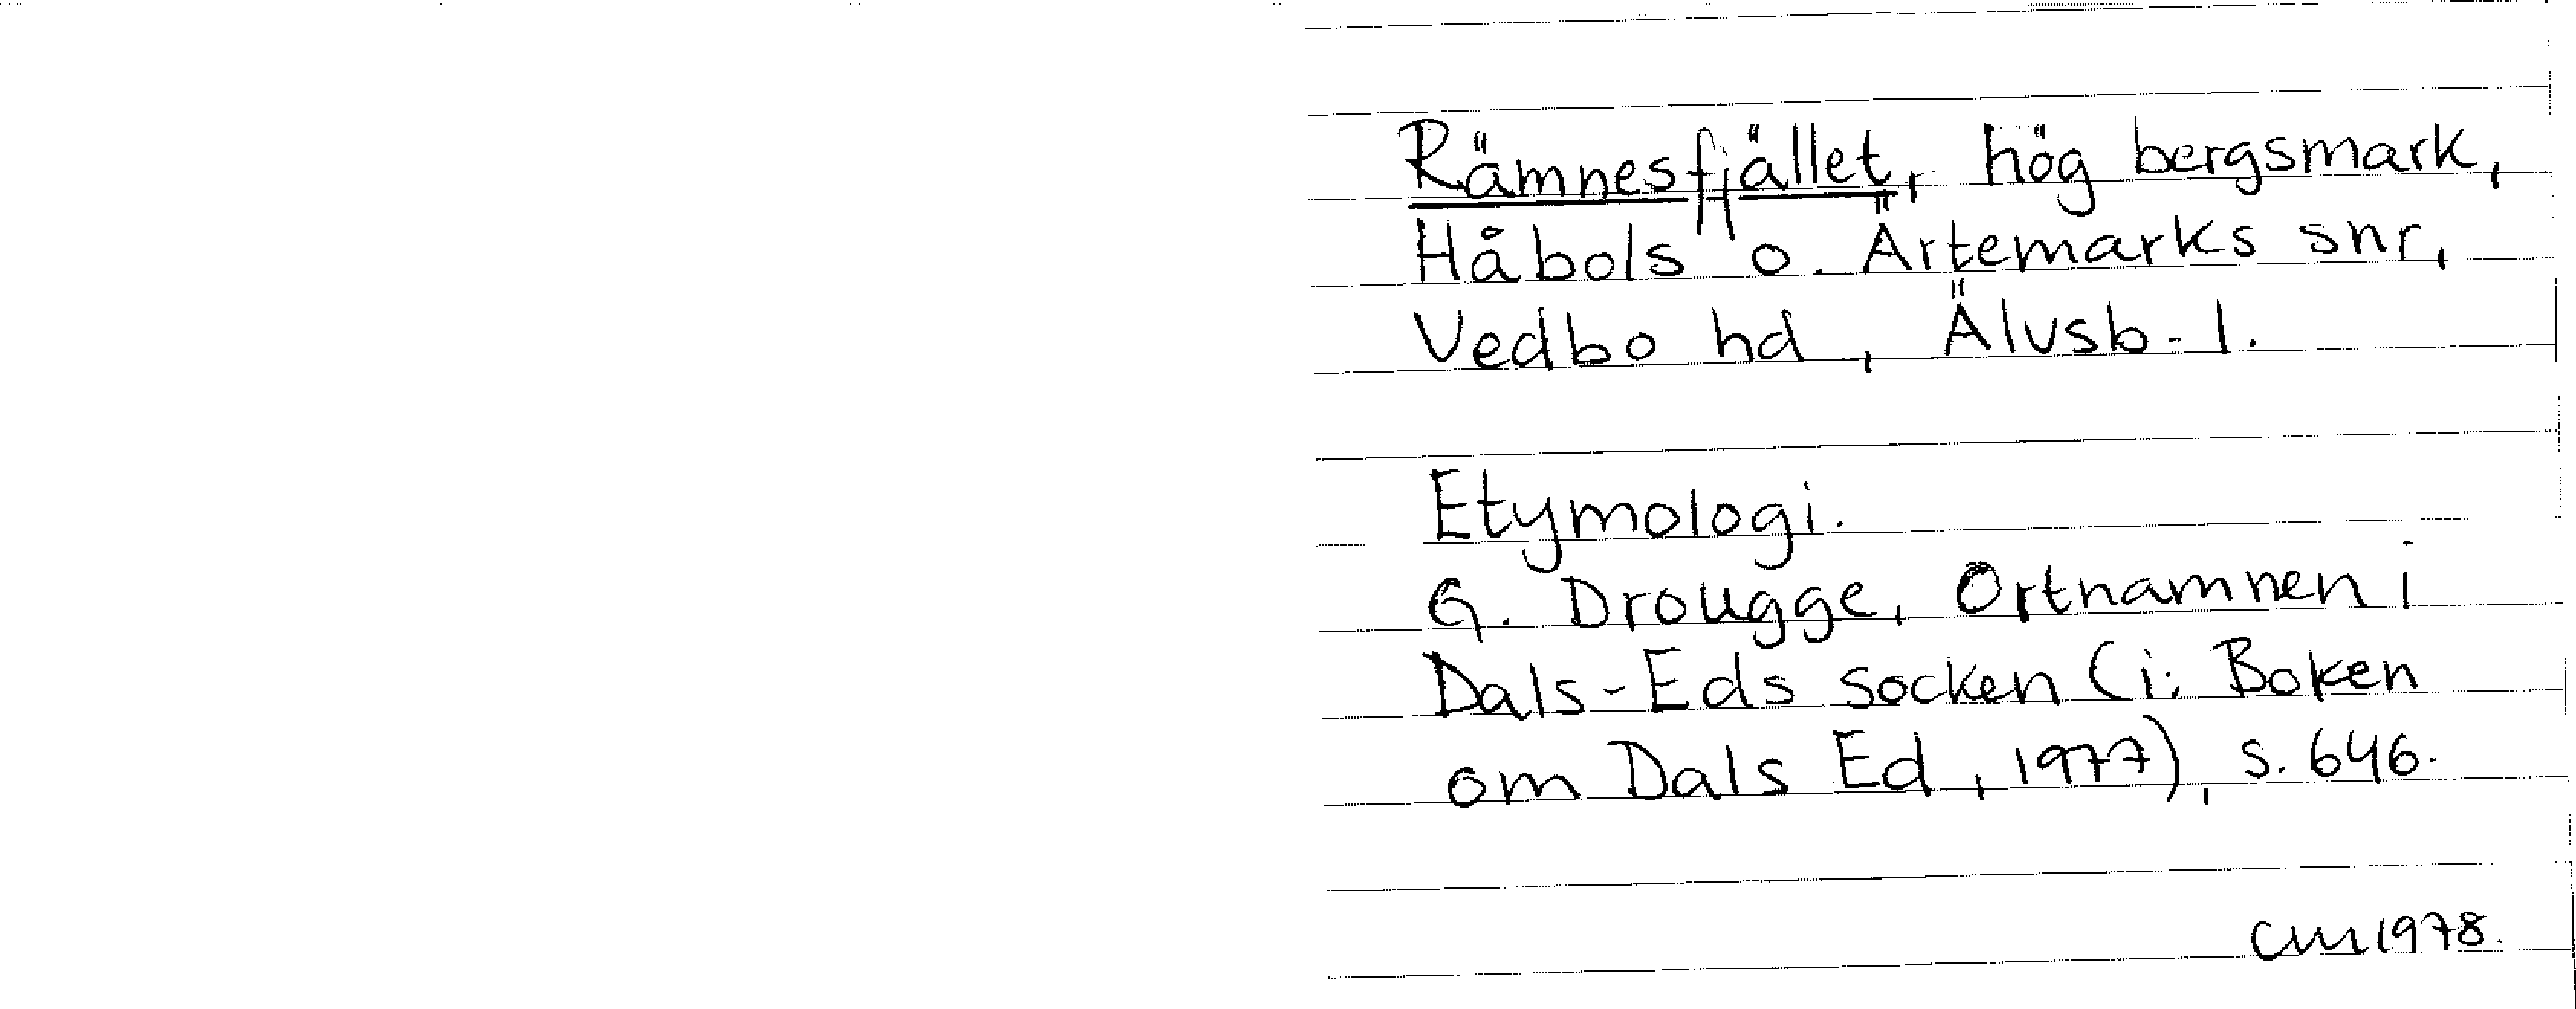 Rämnesfjället, hög bergsmark,
Håbols o. Ärtemarks snr,
Vedbo hd, Älvsb. l.
Etymologi.
G. Drougge, Ortnamnen i
Dals-Eds socken (i: Boken
om Dals Ed, 1977), s. 646.
CM 1978.